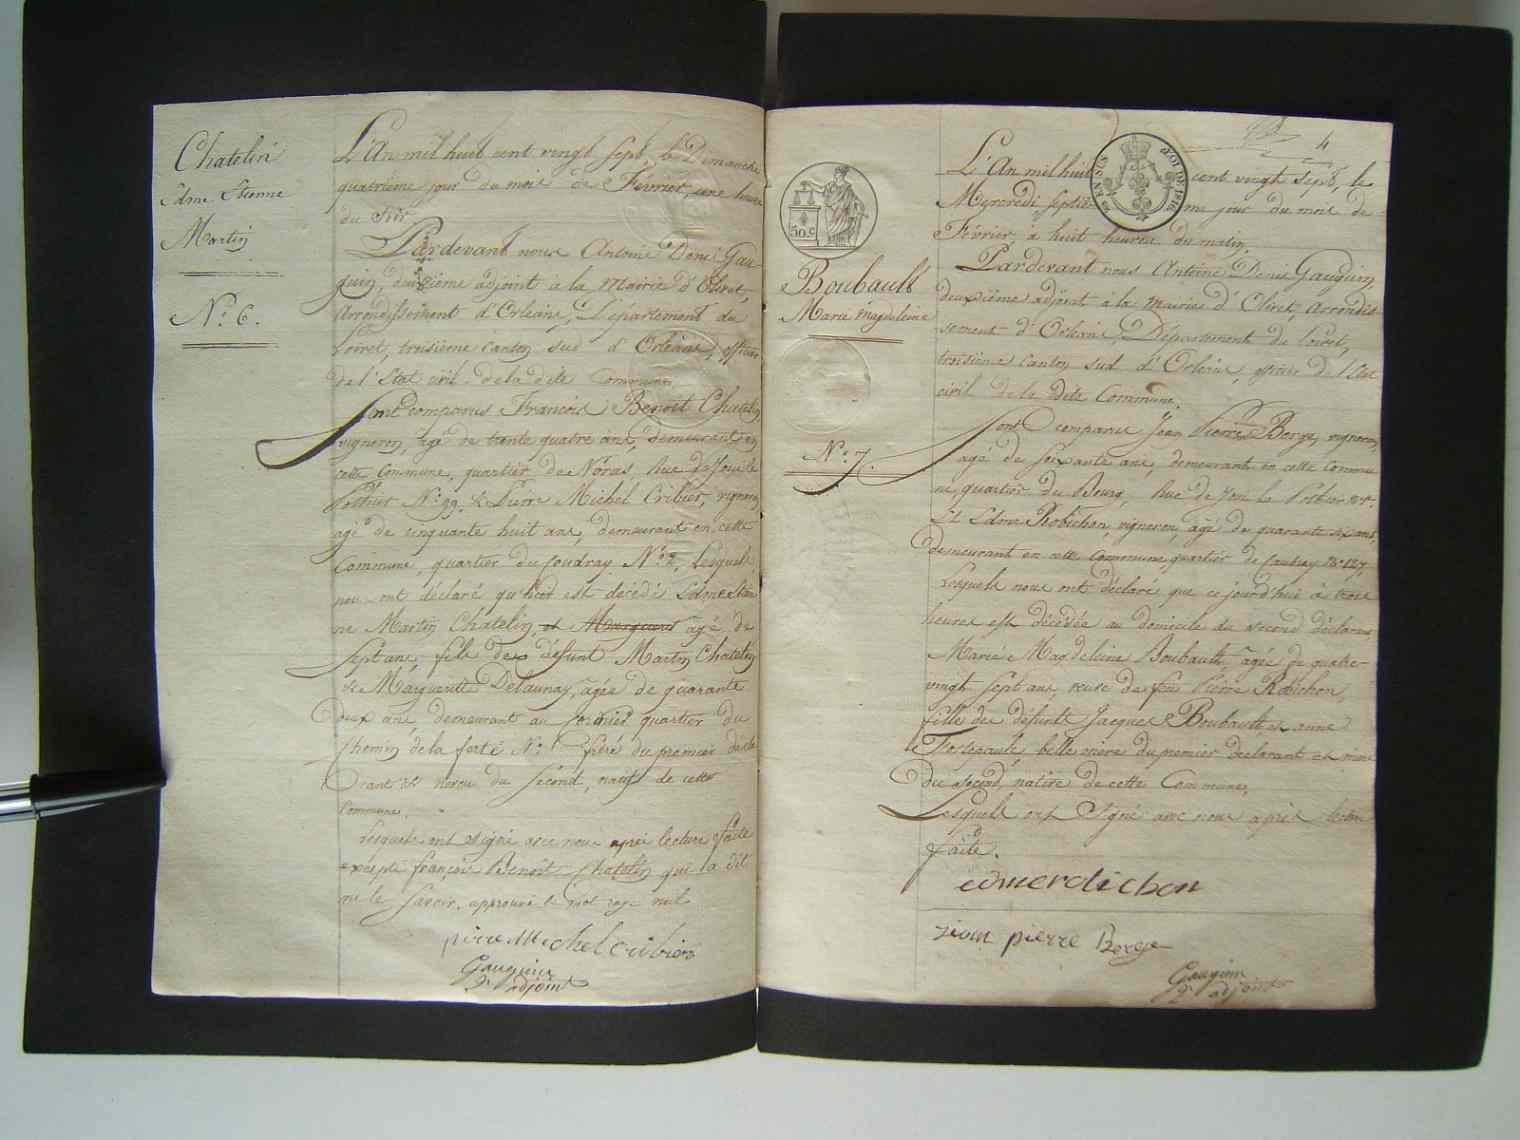 Chatelin
Edme Etienne
Martin
N.o 6.
L'An mil huit cent vingt sept, le Dimanche
quatrième jour du mois de Février, une heure
du soir
Pardevant nous Antoine Denis Gau-
guin, deuxième adjoint à la Mairie d'Olivet,
arrondissement d'Orléans, Département du
Loiret, troisième Canton sud d'Orléans, officier
de l'Etat civil de la dite Commune,
sont comparus François Benoit Chatelin
vigneron, âgé de trente quatre ans, demeurant en
cette Commune, quartier de Noras, Rue de
N.o 99, & Pierre Michel Cribier, vigneron
agé de cinquante huit ans, demeurant en cette
Commune, quartier du Coudray N.o, Lesquels
nous ont déclaré qu'hier est décédé Edme Etien
ne Martin Chatelin, et Marguerite agé de
sept ans, fils de défunt Martin Chatelin
& Marguerite Delaunay, agée de quarante
deux ans demeurant au quartier du
Chemin de la ferté N.o 1 frère du premier décla
rant & neveu du second, natif de cette
Commune.
Lesquels ont signé avec nous après lecture faite
excepté françois Benoit Chatelin qui a dit
ne le savoir. approuvé le mot rayé nul
pierre Michel cribier
Gauguin
2e adjoint
4
25 EN SUS
LOI DE 1816
50.c
Boubault
Marie Magdeleine
N.o 7.
L'An mil huit cent vingt sept, le
Mercredi septième jour du mois de
Février, à huit heures du matin,
Pardevant nous Antoine Denis Gauguin,
deuxième adjoint à la mairie d'Olivet, arrondis
sement d'Orléans, Département du Loiret,
troisième Canton sud d'Orléans, officier de l'Etat
civil de la dite Commune,
sont comparus Jean Pierre Berge, vigneron,
agé de soixante ans, demeurant en cette Commu
ne, quartier du Bourg, Rue de
Et Edme Robichon, vigneron, agé de quarante six ans
demeurant en cette Commune, quartier de N.o 127
Lesquels nous ont déclaré que ce jourd'hui à trois
heures est décédée au domicile du second déclarant
Marie Magdeleine Boubault, agée de quatre-
vingt sept ans, veuve de feu Pierre Robichon,
fille des défunts Jacques Boubault et anne
belle mère du premier déclarant et mère
du second, native de cette Commune,
Lesquels ont signé avec nous après lecture
faite.
edmerobichon
jean pierre Berge
Gauguin
2e adjoint